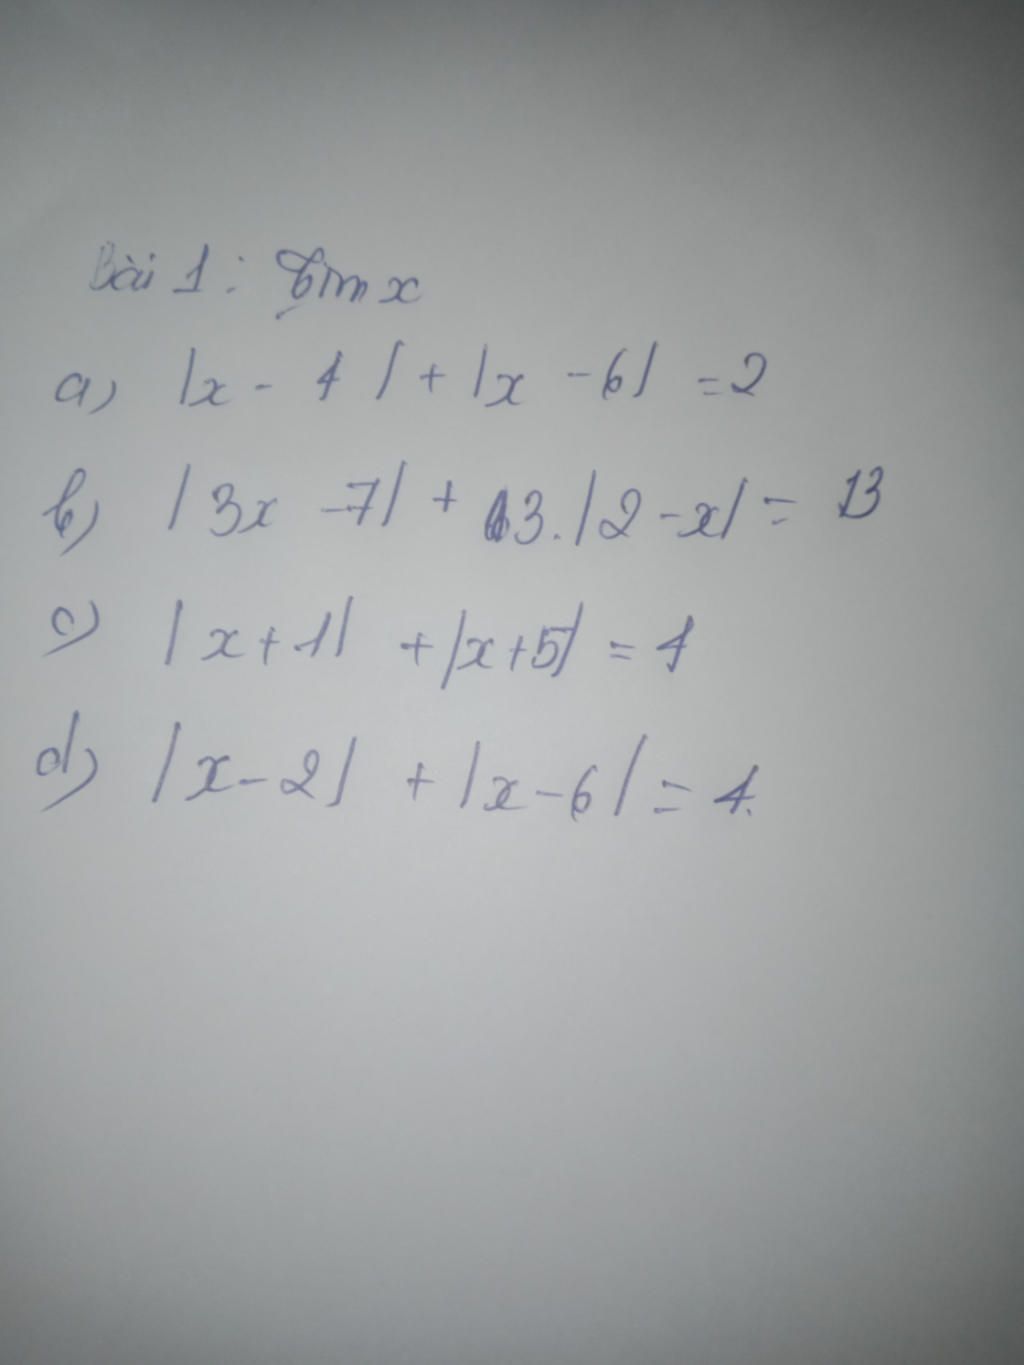 Bài 1: Tìm x
a) |x - 4| + |x - 6| = 2
b) |3x - 7| + 3.|2 - x| = 13
c) |x + 1| + |x + 5| = 4
d) |x - 2| + |x - 6| = 4.